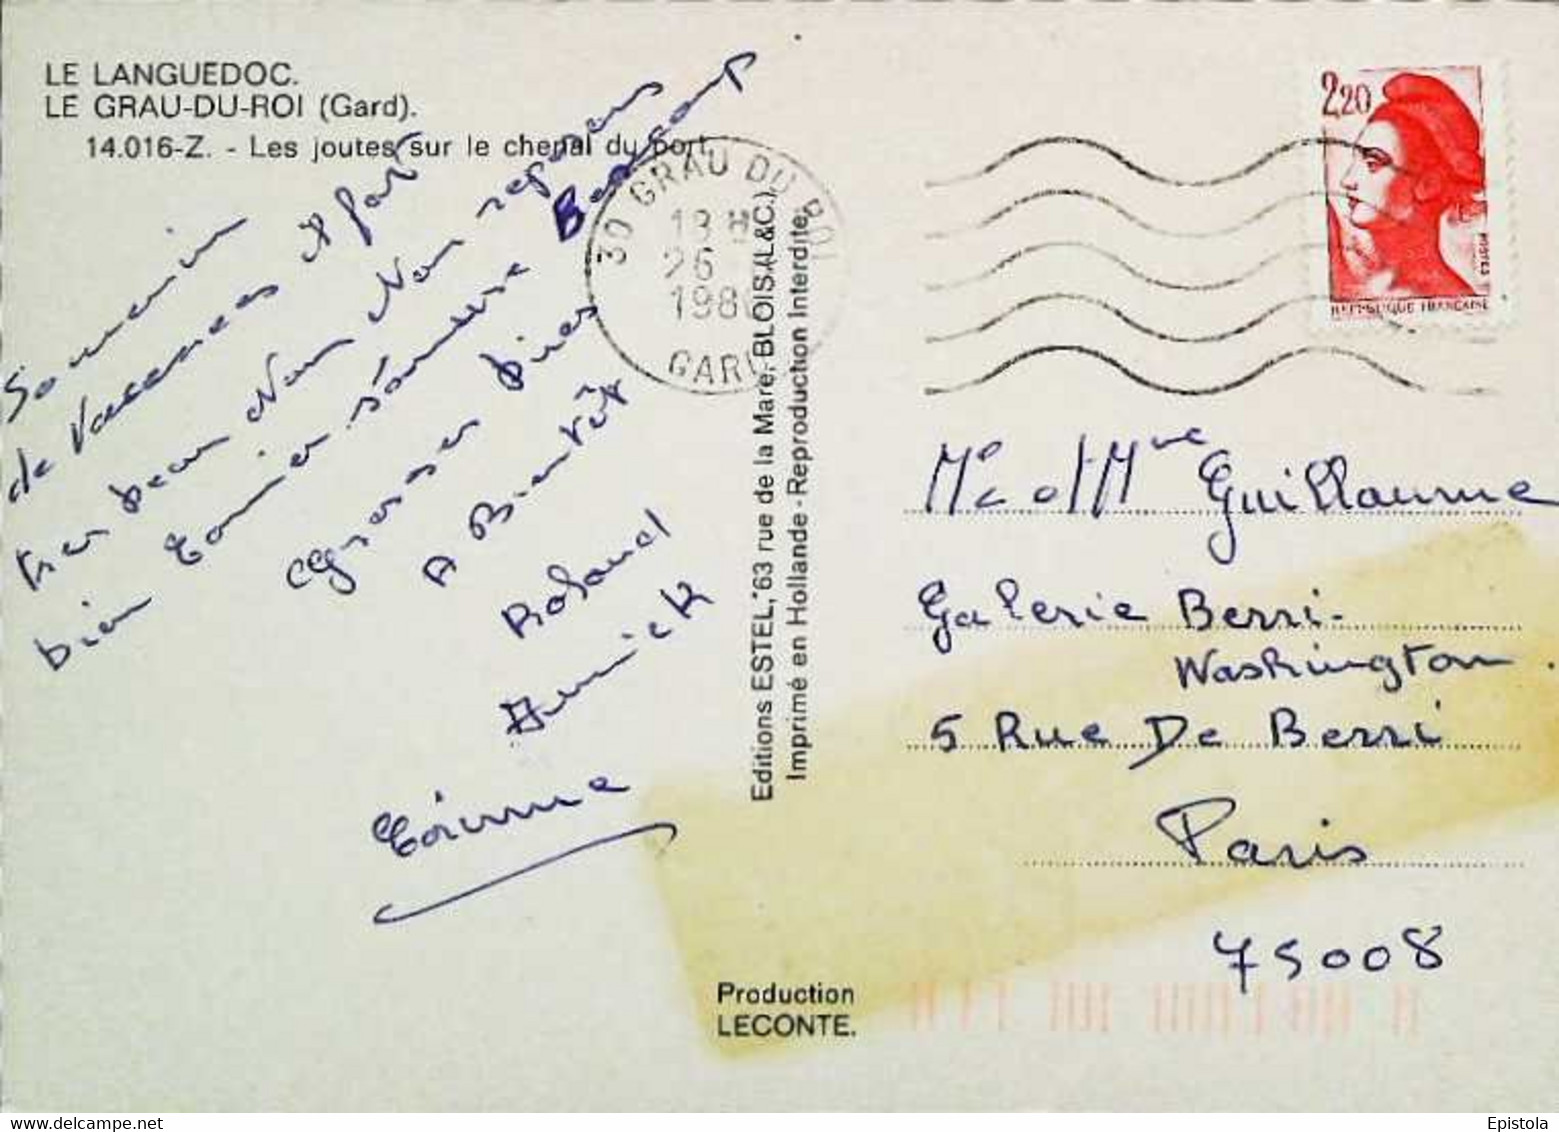 LE LANGUEDOC.
LE GRAU-DU-ROI (Gard).
14.016-Z. - Les joutes sur le chenal du port.
Souvenir
de Vacances Il fait
tres beau Nous Nous reposons
bien Corinne s'amuse Beaucoup
Grosses bises
A Bientôt
Roland
Annick
Corinne
30 GRAU DU ROI
13 H
26
198
GARD
Editions ESTEL, 63 rue de la Mare, BLOIS (L.&C.)
Imprimé en Hollande - Reproduction Interdite.
Production
LECONTE.
2,20
POSTES
REPUBLIQUE FRANCAISE
Mr et Mme Guillaume
Galerie Berri-
Washington.
5 Rue De Berri
Paris
75008
Epistola